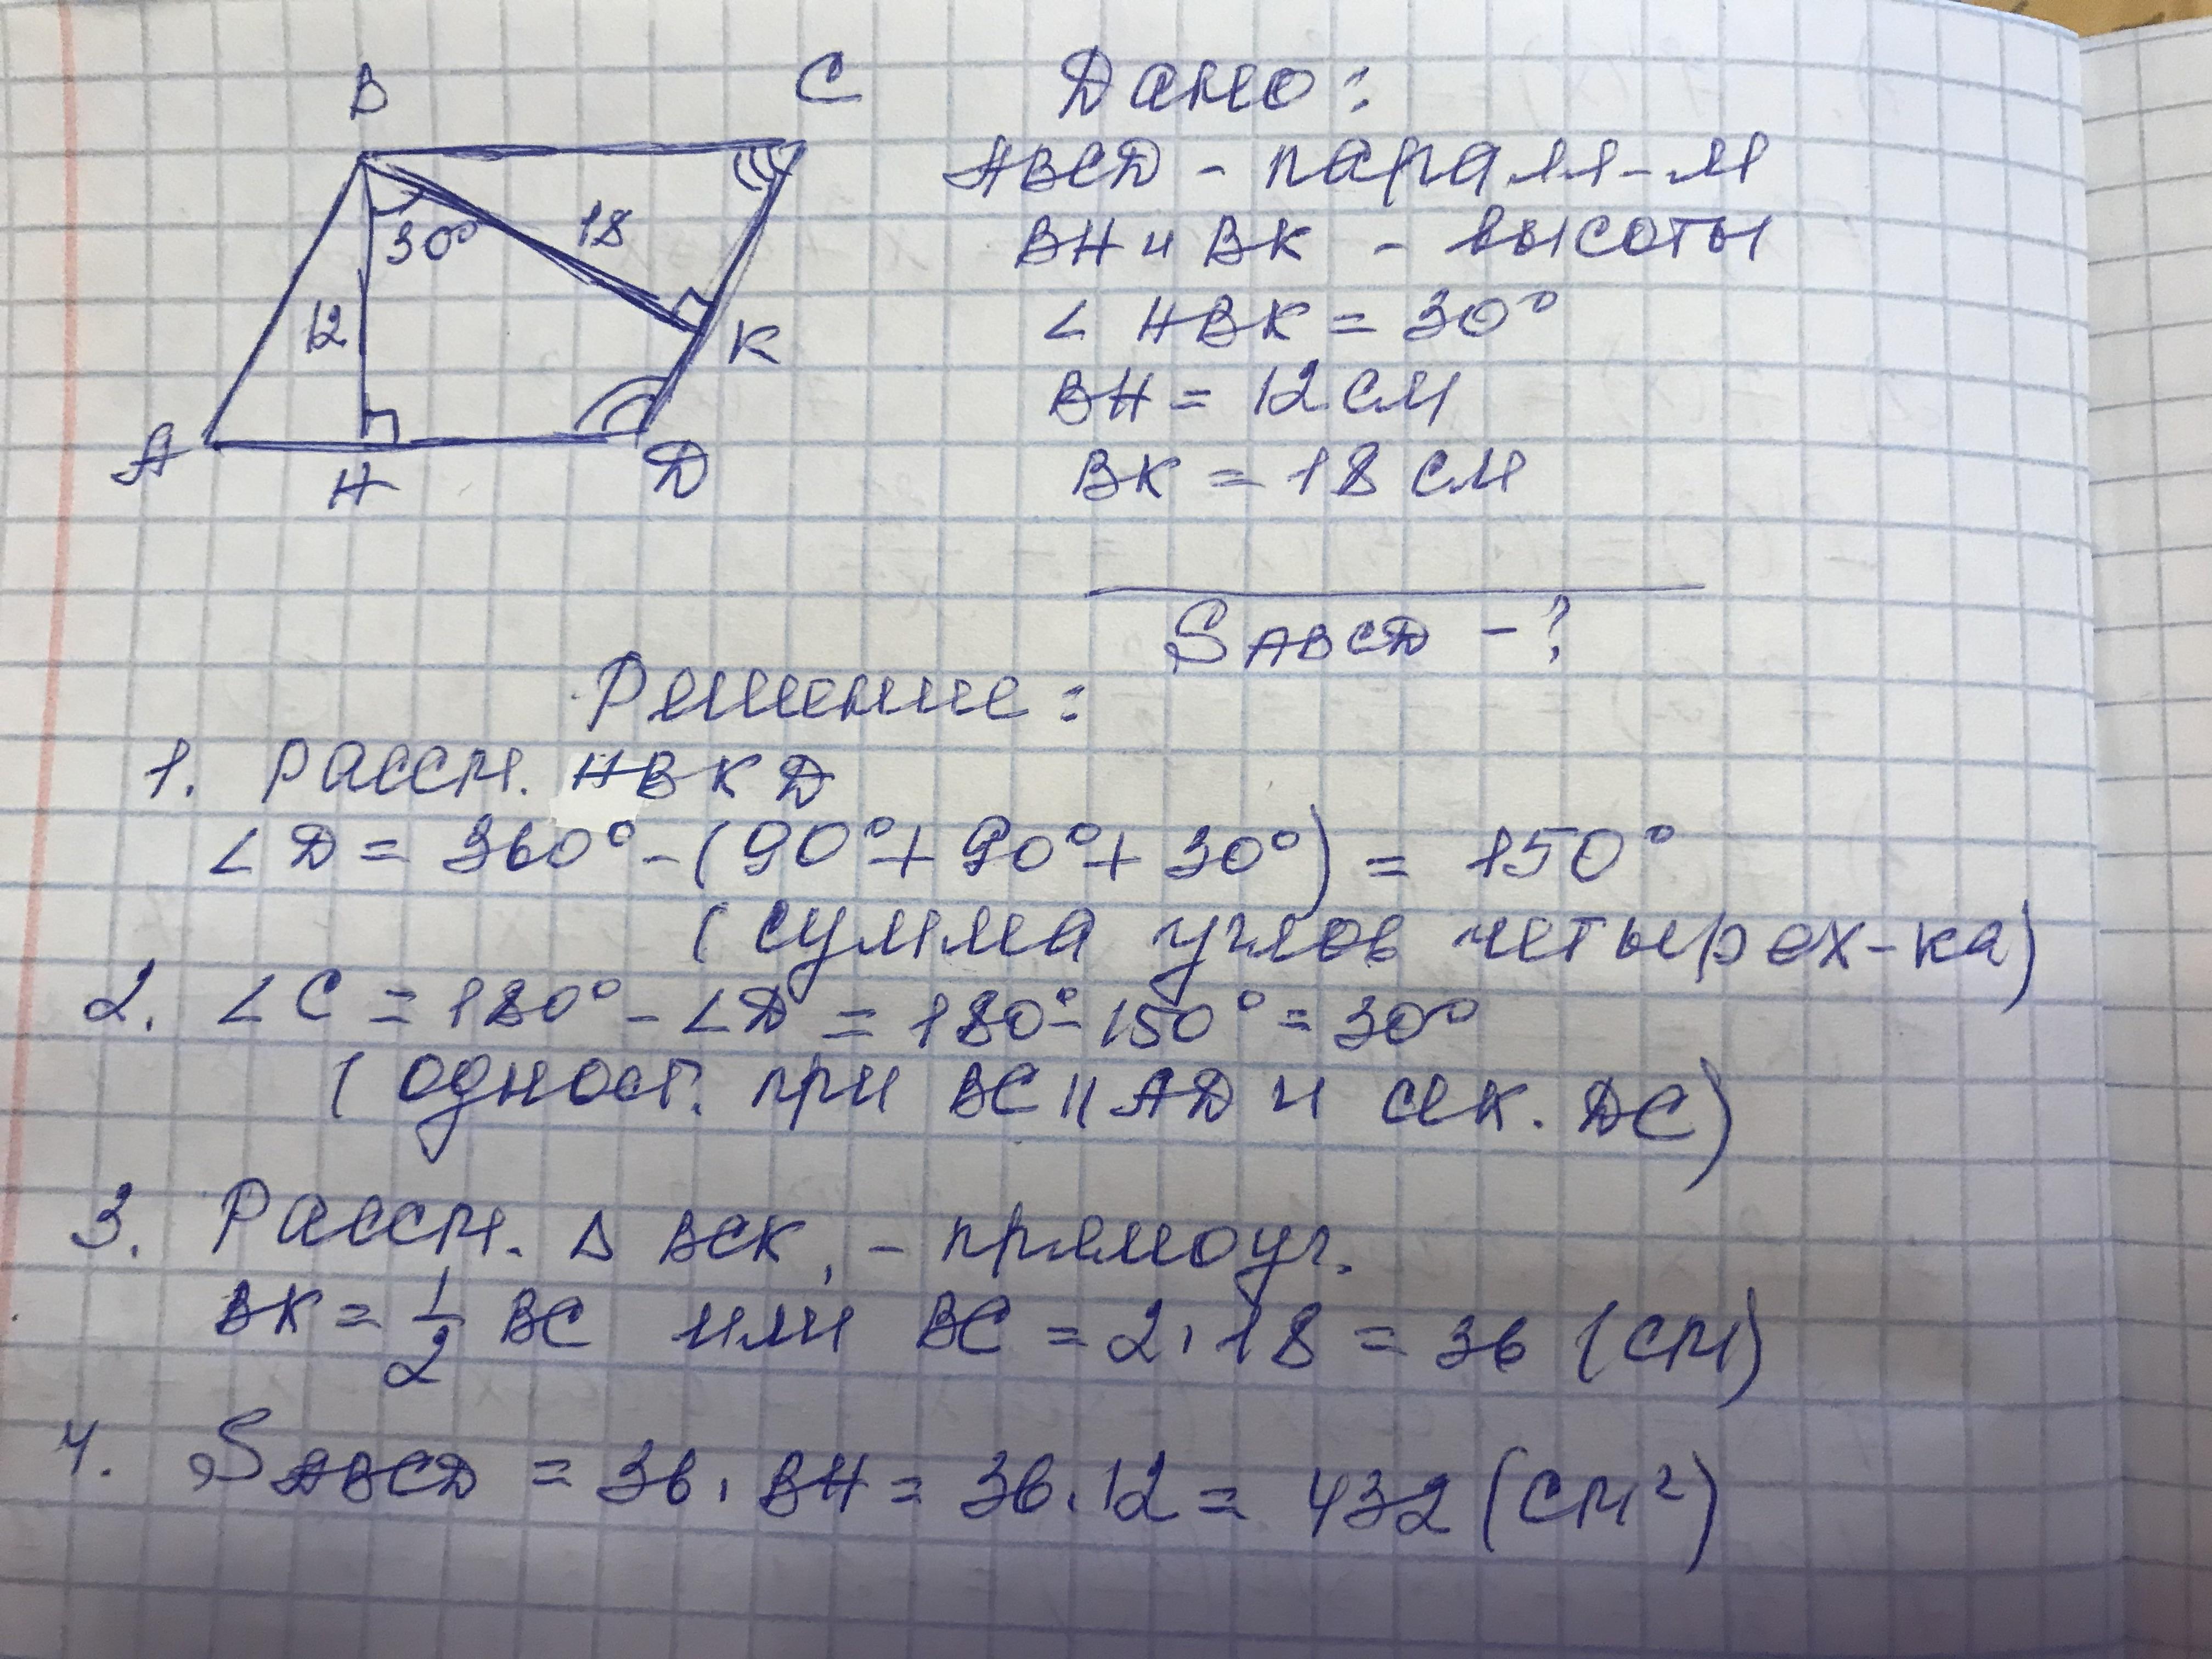 B
C
30°
18
12
K
A
H
D
Дано:
ABCD - паралл-м
BH и BK - высоты
∠ HBK = 30°
BH = 12 см
BK = 18 см
S ABCD - ?
Решение:
1. Рассм. HBKD
∠D = 360° - (90° + 90° + 30°) = 150°
(сумма углов четырех-ка)
2. ∠C = 180° - ∠D = 180° - 150° = 30°
(одност. при BC || AD и сек. DC)
3. Рассм. Δ BCK, - прямоуг.
BK = 1/2 BC или BC = 2 · 18 = 36 (см)
4. S ABCD = 36 · BH = 36 · 12 = 432 (см²)